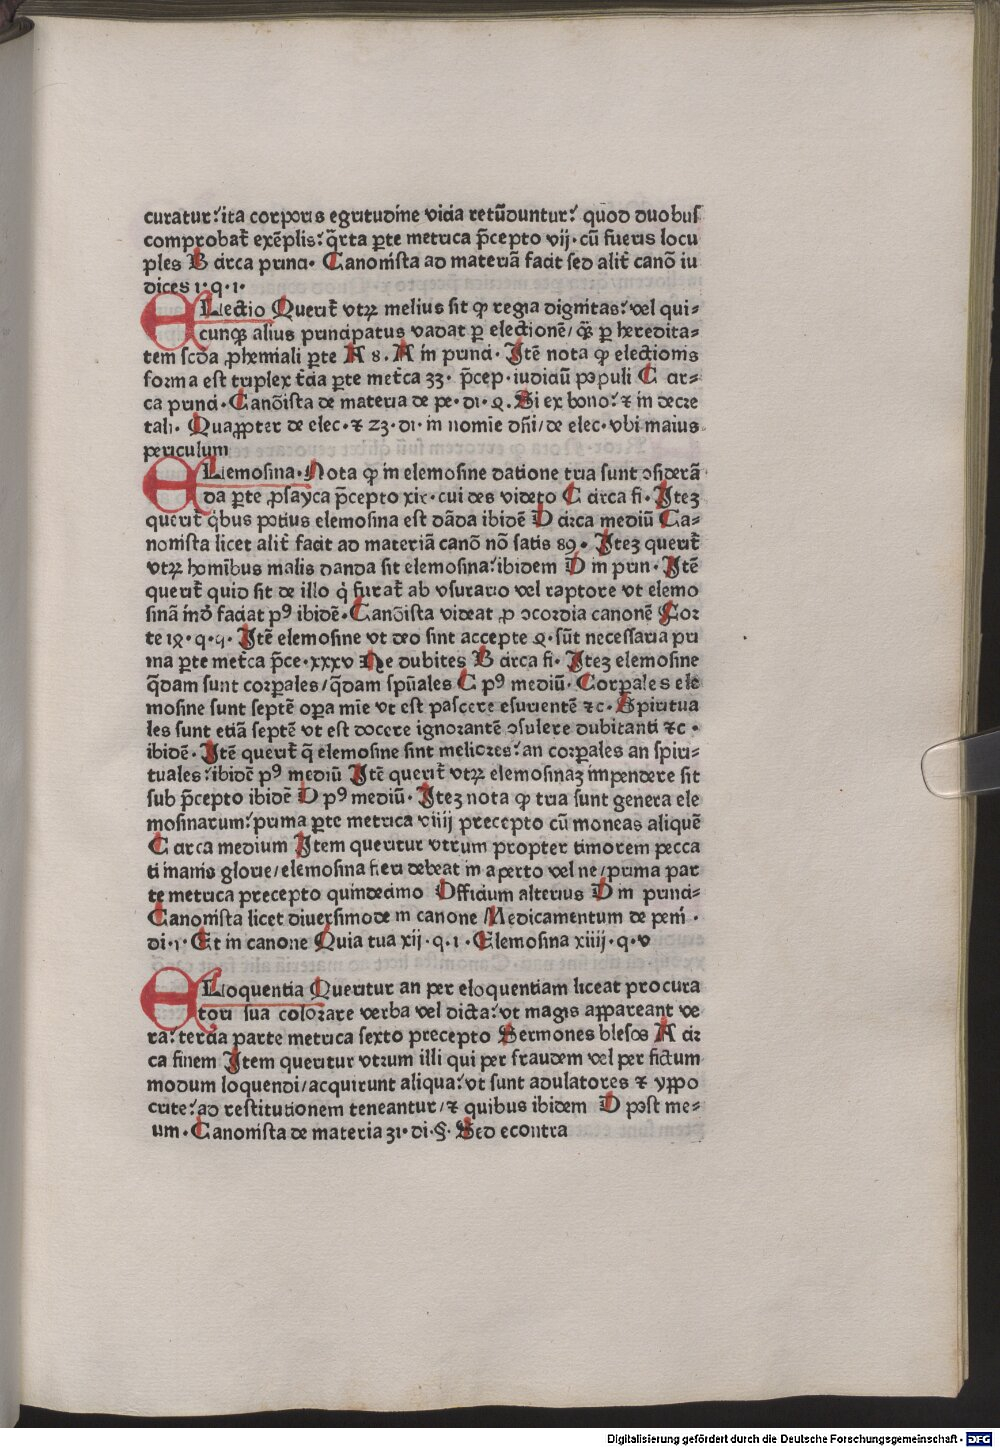 curatur:ita corporis egritudine vicia retūduntur: quod duobus
comprobat̄ exēplis: q̄rta ꝑte metrica p̄cepto vij·cū fueris locu
ples B circa princi· Canonista ad materiā facit sed alit̄ canō iu
dices 1·q·1·
ELectio Querit̄ vtꝝ melius sit ꝙ regia dignitas: vel qui⸗
cunqꝫ alius principatus vadat ꝑ electionē/ q̄ꝫ ꝑ heredita⸗
tem scda ꝓhemiali ꝑte A 8. A in princi· Itē nota ꝙ electionis
forma est triplex t̄cia ꝑte met̄ca 33· p̄cep·iudiciū populi C cir⸗
ca princi·Canōista de materia de pe·di·2.Si ex bono: ⁊ in decre
tali· Quaꝓpter de elec·⁊ 23·di·in nomīe dn̄i/de elec·vbi maius
periculum
ELemosina·Nota ꝙ in elemosine datione tria sunt ꝯsiderā
da ꝑte ꝓsayca p̄cepto xix·cui des videto C circa fi·Iteꝫ
querit̄ q̄bus potius elemosina est dāda ibidē D circa mediū Ca⸗
nonista licet alit̄ facit ad materiā canō nō satis 89· Iteꝫ querit̄
vtꝝ hominibus malis danda sit elemosina:ibidem D in prin·Itē
querit̄ quid sit de illo q̇ furat̄ ab vsurario vel raptore vt elemo
sinā īnō faciat pꝰ ibidē·Canōista videat ꝓ ꝯcordia canonē For
te 12·q·5·Itē elemosine vt deo sint accepte 2·sūt necessaria pri
ma ꝑte met̄ca p̄ce·xxxv Ne dubites B circa fi·Iteꝫ elemosine
q̄dam sunt corꝑales/q̄dam spūales C pꝰ mediū·Corꝑales ele
mosine sunt septē oꝑa mīe vt est pascere esurientē ⁊c·Spiritua
les sunt etiā septē vt est docere ignorantē ꝯsulere dubitanti ⁊c·
ibidē·Itē querit̄ q̄ elemosine sint meliores:an corꝑales an spiri⸗
tuales:ibidē pꝰ mediū Itē querit̄ vtꝝ elemosinaꝫ impendere sit
sub p̄cepto ibidē D pꝰ mediū·Iteꝫ nota ꝙ tria sunt genera ele
mosinarum:prima ꝑte metrica viiij precepto cū moneas aliquē
C circa medium Item queritur vtrum propter timorem pecca
ti inanis glorie/elemosina fieri debeat in aperto vel ne/prima par
te metrica precepto quindecimo Officium alterius D in princi⸗
Canonista licet diuersimode in canone Medicamentum de peni·
di·1·Et in canone Quia tua xij·q·1·Elemosina xiiij·q·v
ELoquentia Queritur an per eloquentiam liceat procura
tori sua colorare verba vel dicta:vt magis appareant ve
ra:tercia parte metrica sexto precepto Sermones blesos A cir
ca finem Item queritur vtrum illi qui per fraudem vel per fictum
modum loquendi/acquirunt aliqua:vt sunt adulatores ⁊ yppo
crite:ad restitutionem teneantur/⁊ quibus ibidem D post me⸗
um·Canonista de materia 31·di·§·Sed econtra
Digitalisierung gefördert durch die Deutsche Forschungsgemeinschaft - DFG